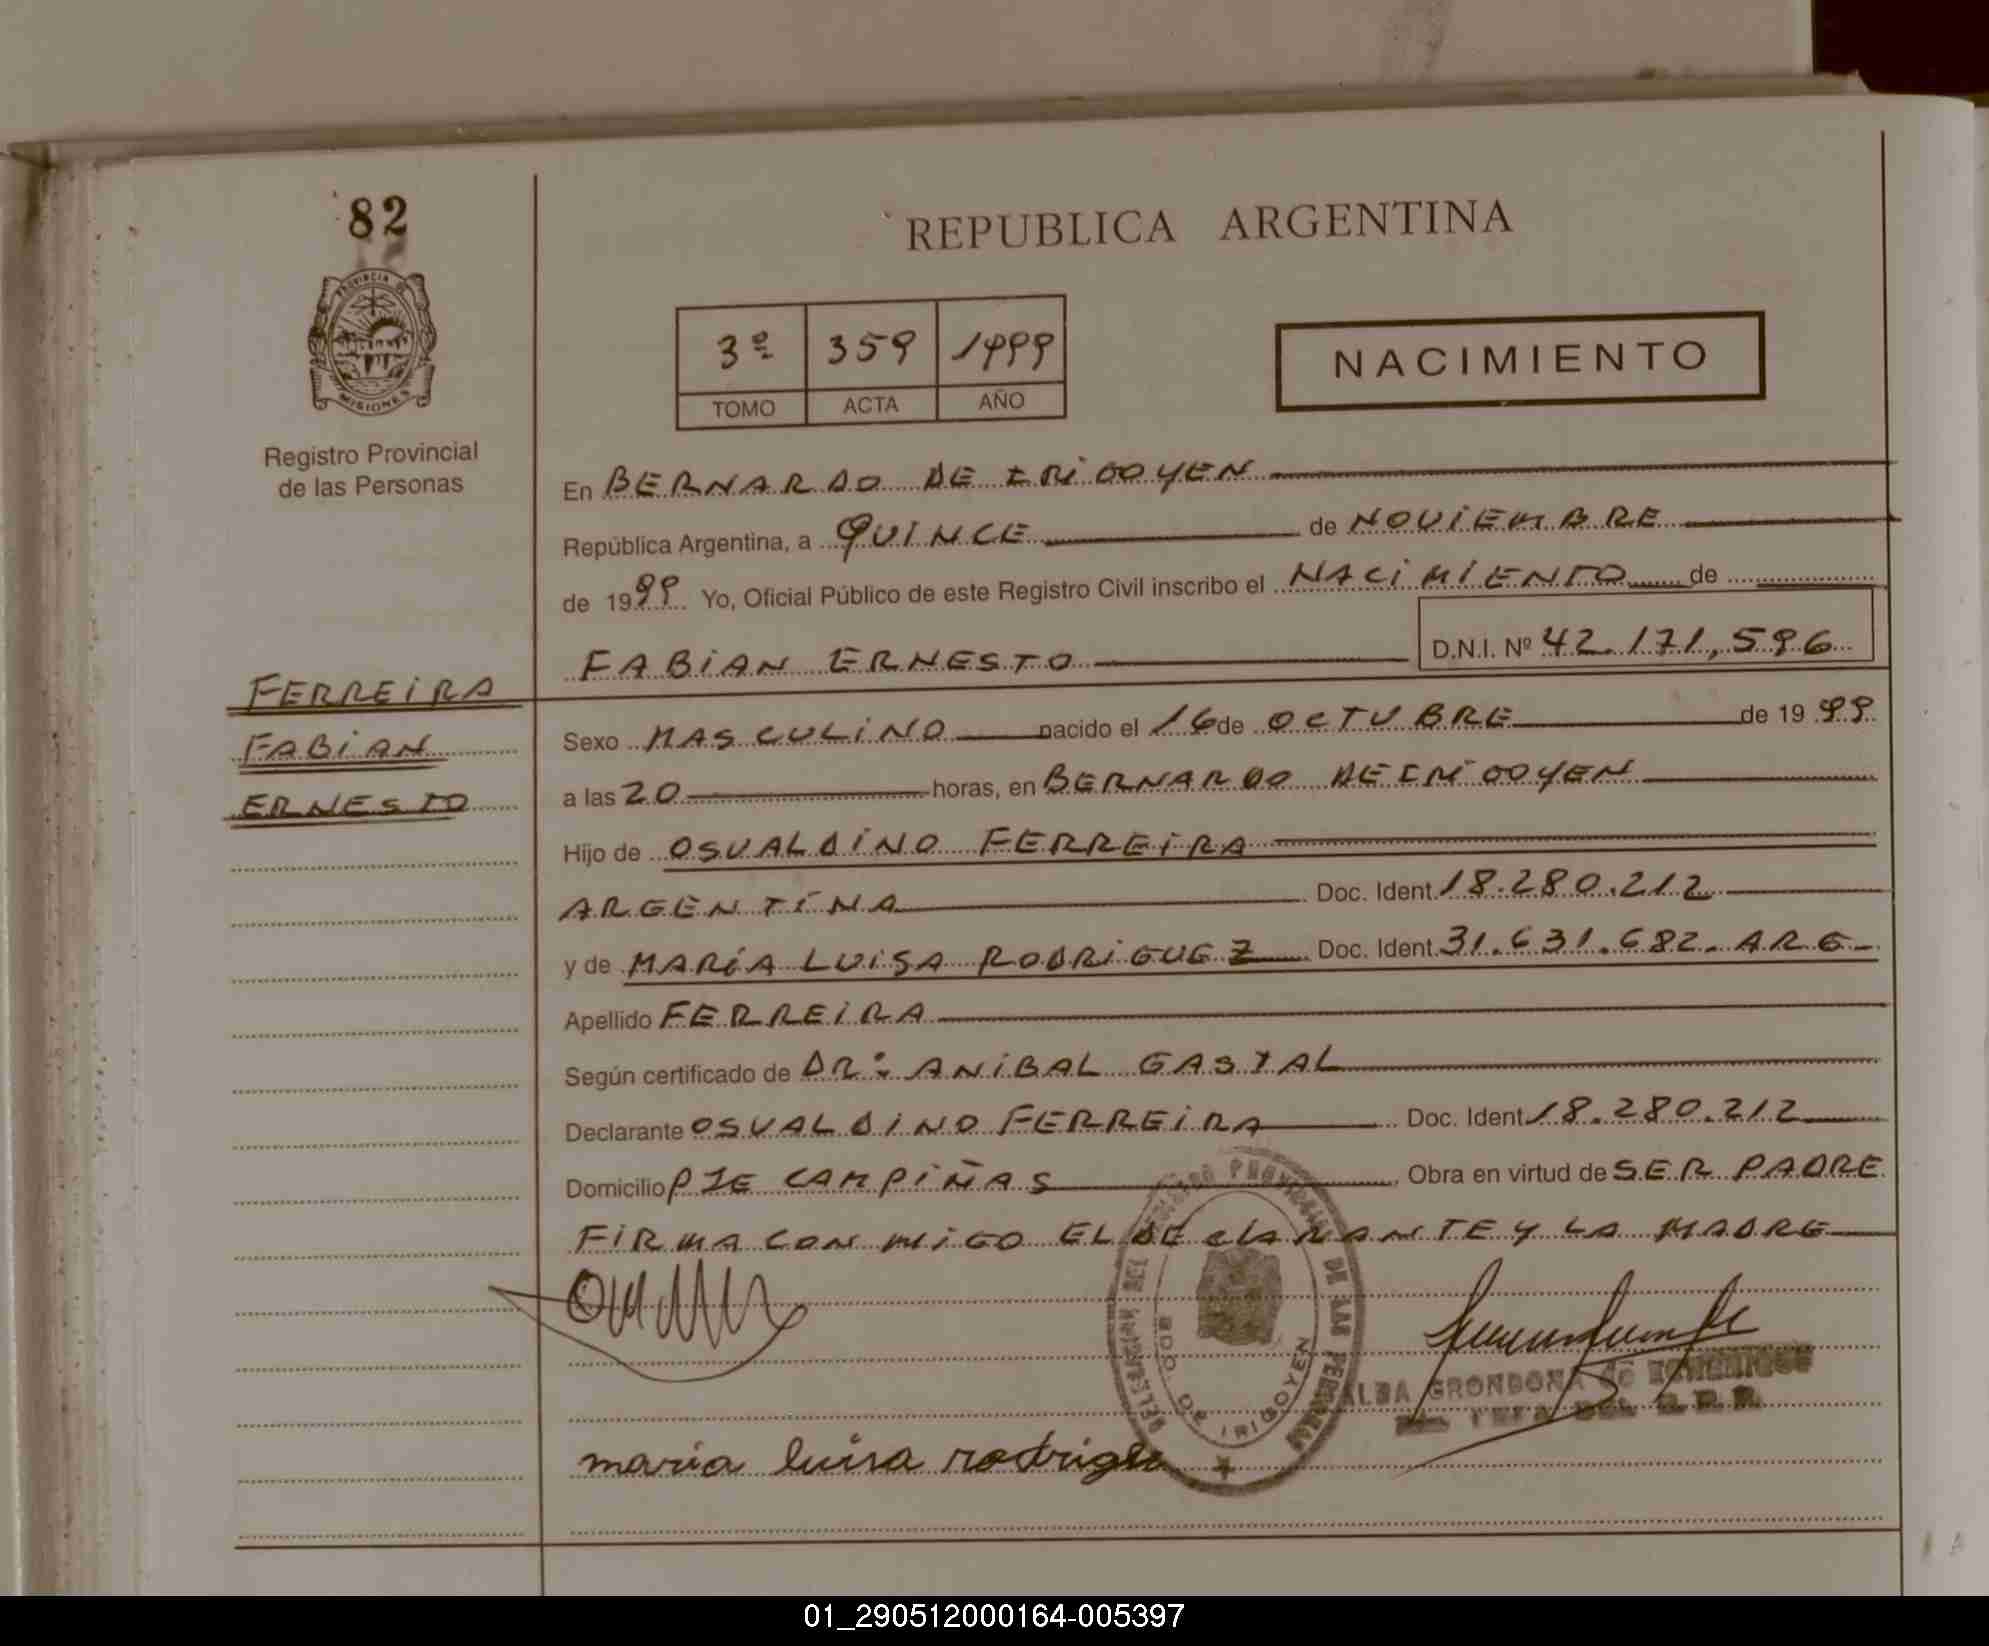 82
REPUBLICA ARGENTINA
PROVINCIA DE
MISIONES
3º 359 1999
TOMO ACTA AÑO
NACIMIENTO
Registro Provincial
de las Personas
En BERNARDO DE IRIGOYEN
República Argentina, a QUINCE de NOVIEMBRE
de 1999 Yo, Oficial Público de este Registro Civil inscribo el NACIMIENTO de
FABIAN ERNESTO D.N.I. Nº 42.171,596
FERREIRA
FABIAN
ERNESTO
Sexo MASCULINO nacido el 16 de OCTUBRE de 1999
a las 20 horas, en BERNARDO DE IRIGOYEN
Hijo de OSVALDINO FERREIRA
ARGENTINA Doc. Ident. 18.280.212
y de MARÍA LUISA RODRIGUEZ Doc. Ident. 31.631.682. ARG
Apellido FERREIRA
Según certificado de DR: ANIBAL GASTAL
Declarante OSVALDINO FERREIRA Doc. Ident 18.280.212
Domicilio PJE CAMPIÑAS Obra en virtud de SER PADRE
FIRMA CON MIGO EL DEClARANTE Y LA MADRE
PROVINCIAL DE LAS PERSONAS
BDO. DE IRIGOYEN
ALBA GRONDONA de
JEFA DEL R.P.P.
maria luisa rodrigue
01_290512000164-005397